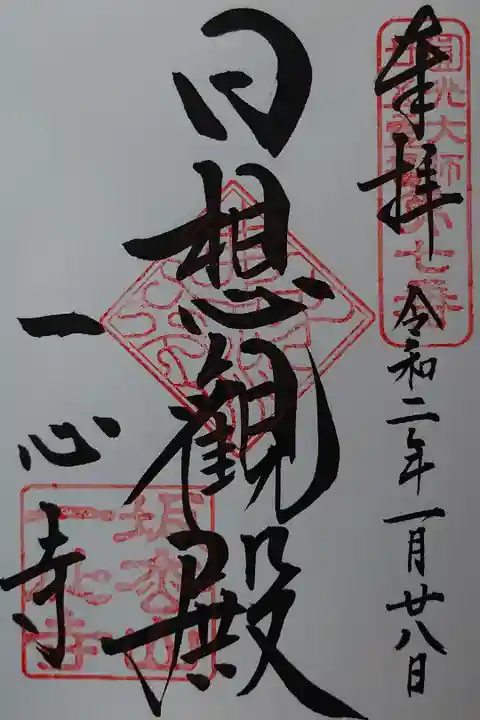 奉拝
令和二年一月廿八日
圓光大師
日想觀殿
一心寺
坂松山
一心寺